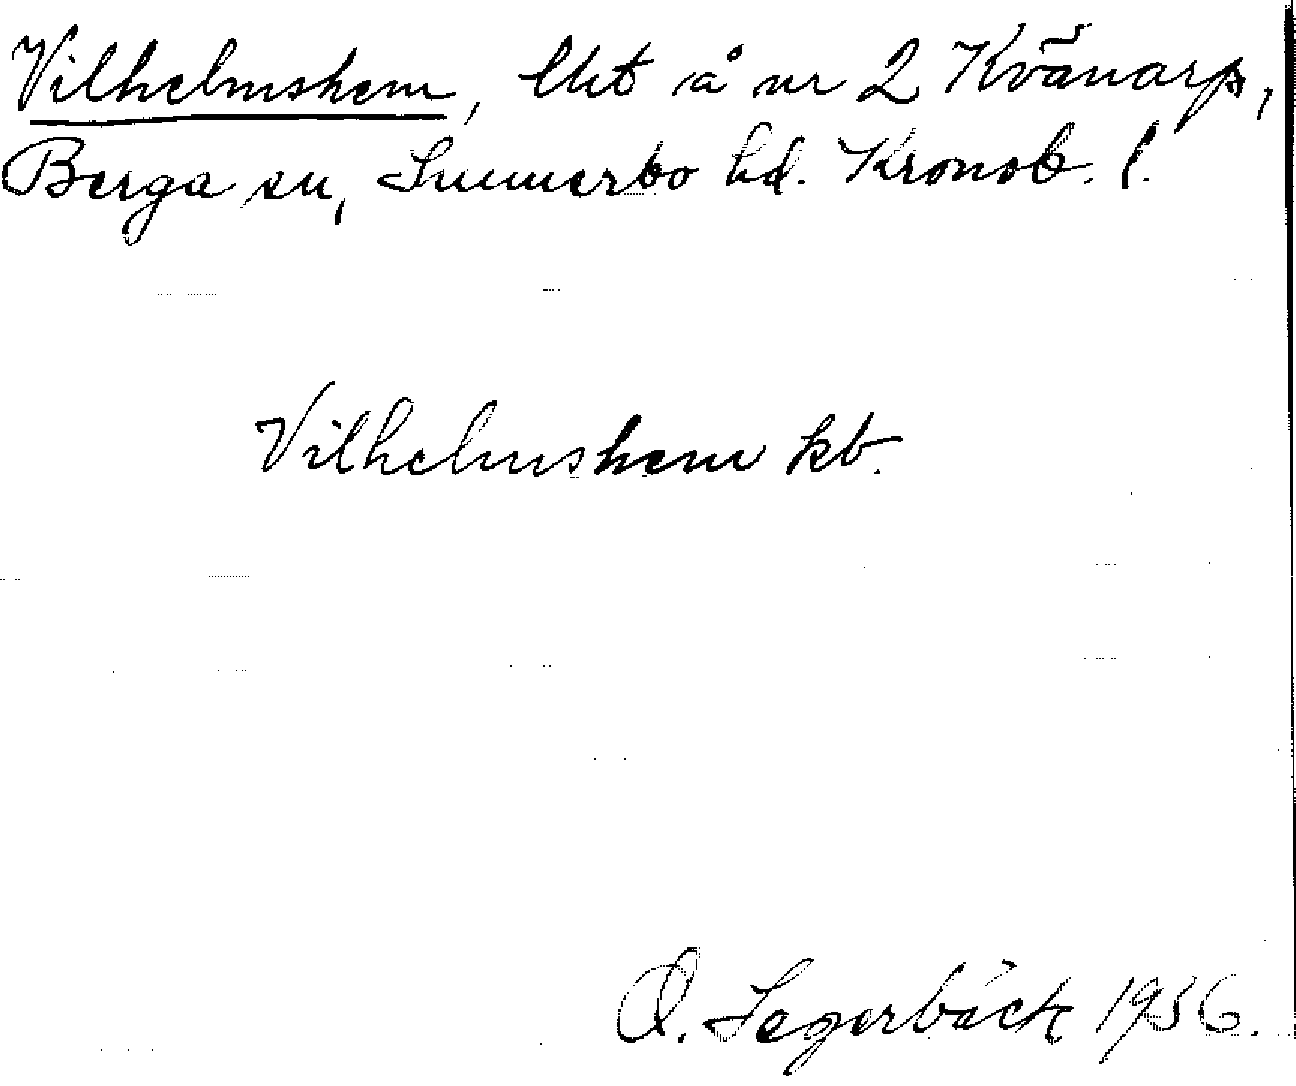 Vilhelmshem, lht å nr 2 Kvänarp,
Berga sn, Sunnerbo hd. Kronob. l.
Vilhelmshem kb.
O. Segerbäck 1956.